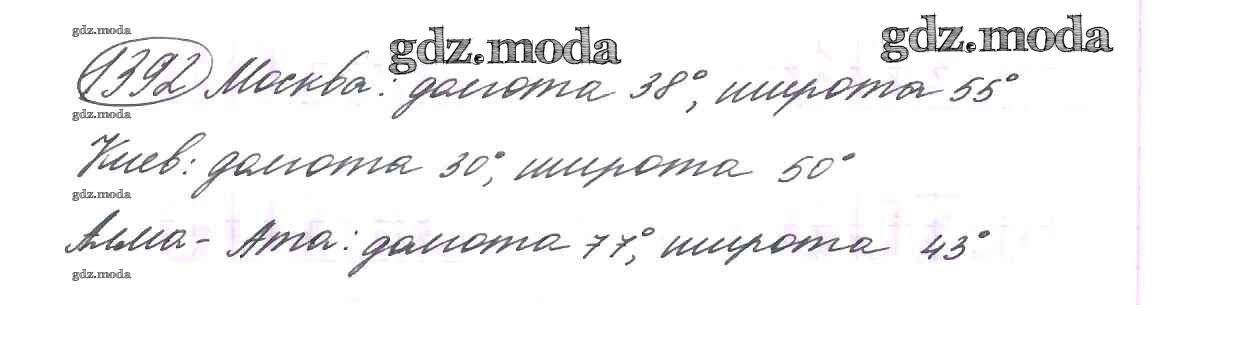 gdz.moda
gdz.moda gdz.moda
1392 Москва: долгота 38°, широта 55°
gdz.moda
Киев: долгота 30°, широта 50°
gdz.moda
Алма-Ата: долгота 77°, широта 43°
gdz.moda